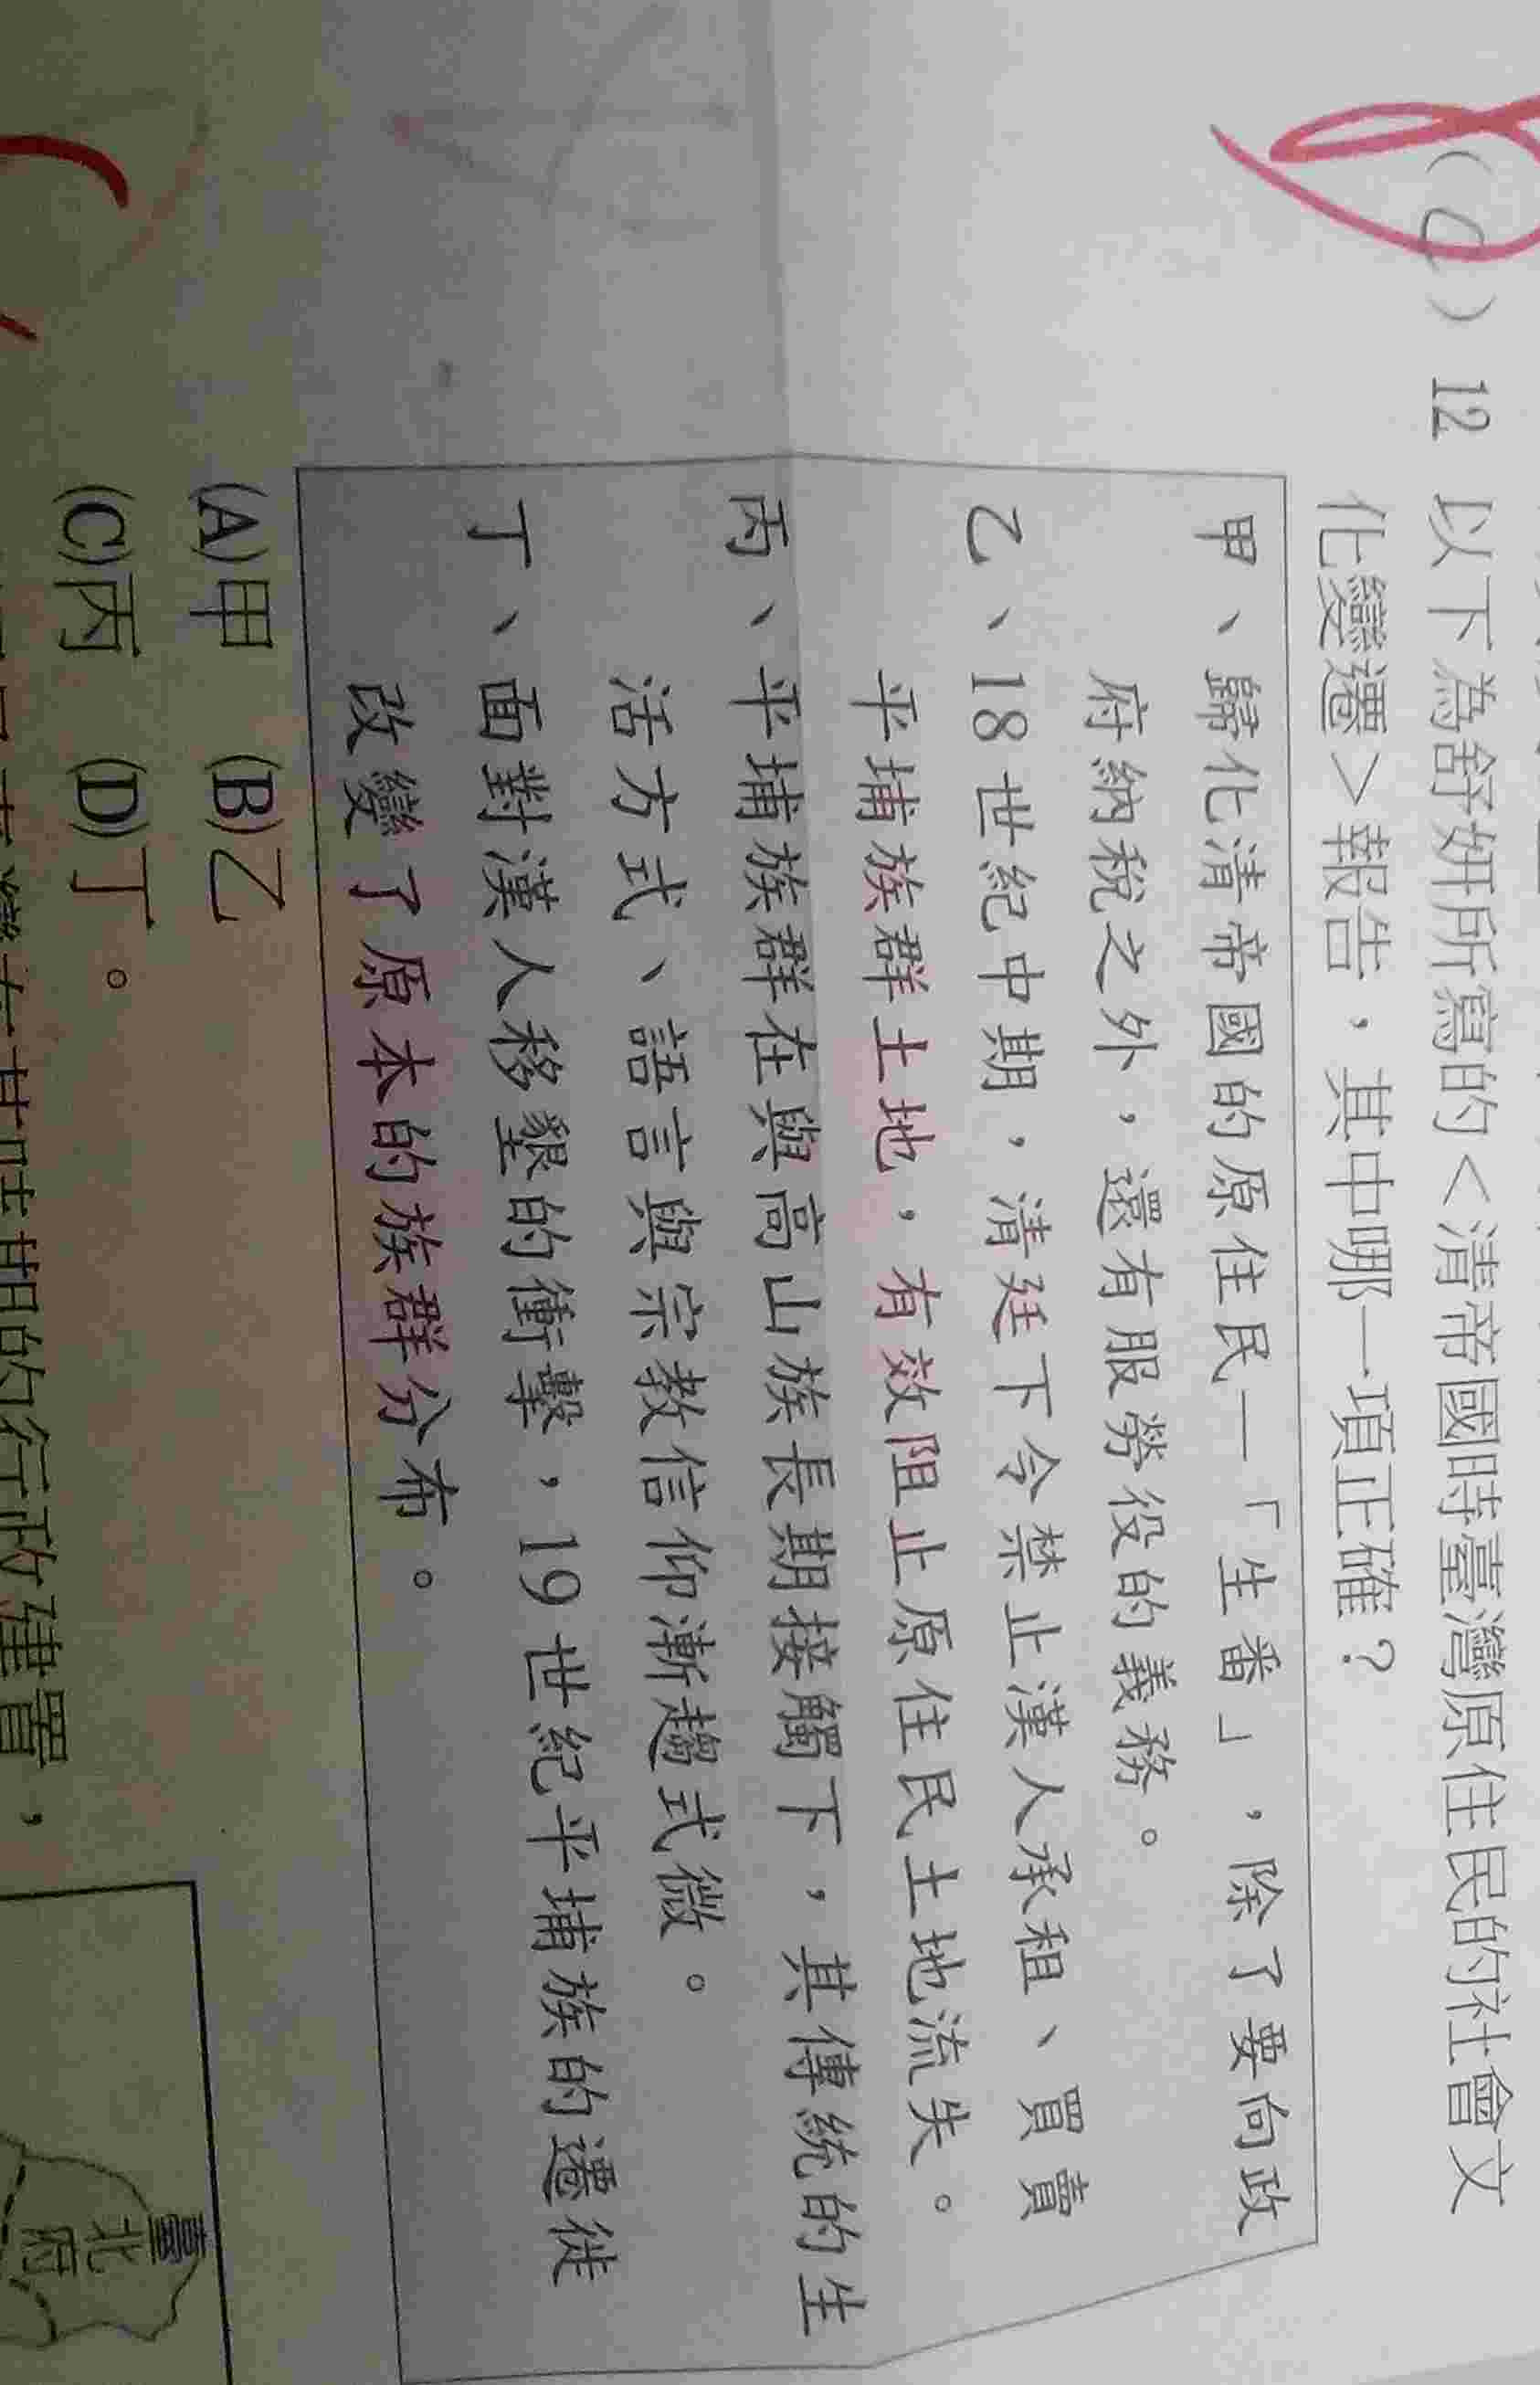 (C) 12 以下為舒妍所寫的<清帝國時臺灣原住民的社會文
化變遷>報告，其中哪一項正確？
甲、歸化清帝國的原住民—「生番」，除了要向政
府納稅之外，還有服勞役的義務。
乙、18世紀中期，清廷下令禁止漢人承租、買賣
平埔族群土地，有效阻止原住民土地流失。
丙、平埔族群在與高山族長期接觸下，其傳統的生
活方式、語言與宗教信仰漸趨式微。
丁、面對漢人移墾的衝擊，19世紀平埔族的遷徙
改變了原本的族群分布。
(A)甲 (B)乙
(C)丙 (D)丁。
時期的行政建置，
臺北府